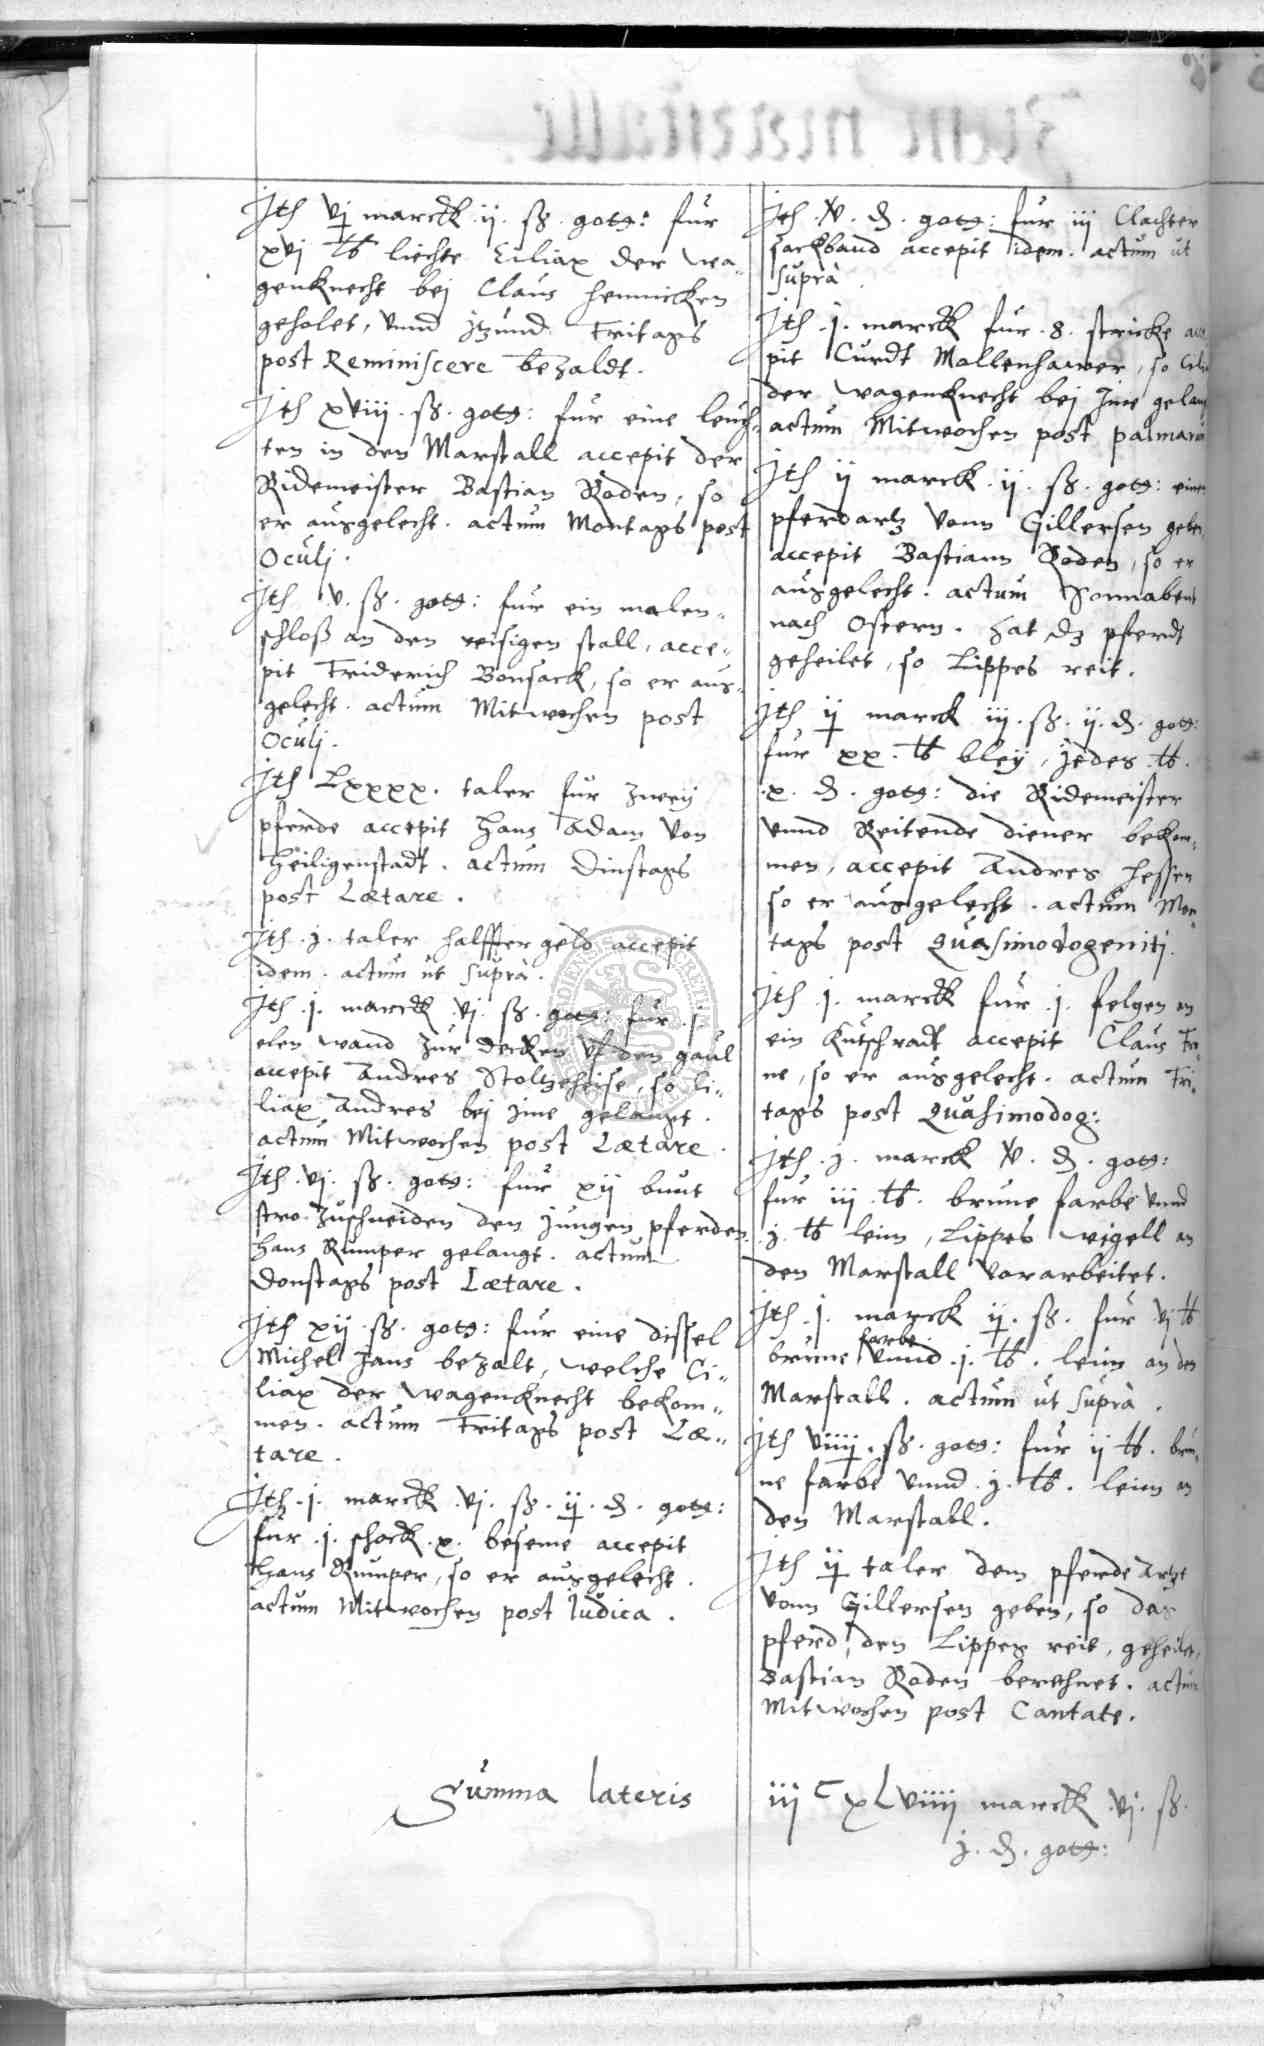 Zum marstalle
Ith vj marck ij. ß. gotg: fur
xvj lb liechte Ciliax der wa„
genknecht bej Claus Hennicken
geholet, vnnd jtzund Fritags
post Reminiscere bezaldt.
Ith xviij. ß. gotg: fur eine leuch„
ten in den Marstall accepit der
Ridemeister Bastian Roden, so
er ausgelecht. actum Montags post
Oculj.
Ith v. ß. gotg: fur ein malen„
schloß an den reisigen stall, acce„
pit Friderich Bonsack, so er aus„
gelecht. actum Mitwochen post
Oculj.
Ith Lxxxx. taler fur zweij
pferde accepit Hans Adam von
Heiligenstadt. actum Dinstags
post Lætare.
Ith .j. taler halffter geld accepit
idem. actum ut suprà.
Ith .j. marck vj. ß. gotg: fur .j
elen wand zur decken vf den gaul
accepit Andres Stoltzeheise, so Ci„
liax Andres bej jme gelangt.
actum Mitwochen post Lætare.
Ith .vj. ß. gotg: fur xij bunt
stro zuschneiden den jungen pferden
Hans Rumper gelangt. actum
Donstags post Lætare.
Ith xij .ß. gotg: fur eine dissel
Michel Jans bezalt, welche Ci„
liax der wagenknecht bekom„
men. actum Fritags post Læ„
tare.
Ith .j. marck .vj. ß. ij. d. gotg:
fur .j. schock .x. beseme accepit
Hans Rumper, so er ausgelecht.
actum Mitwochen post Judica.
Ith .v. d. gotg: fur iij Clachter
sackband accepit idem. actum ut
suprà.
Ith .j. marck fur .8. stricke acce
pit Curdt Mollenhawer, so
der wagenknecht bej Jme gelang
actum Mitwochen post palmarum
Ith ij marck .ij. ß. gotg: einen
pferdartz vonn Gillersen geben
accepit Bastiann Roden, so er
ausgelecht. actum Sonnabent
nach Ostern. hat dz pferdt
geheilet, so Lippes reit.
Ith ij marck iij .ß. ij. d. gotg:
fur xx. lb bleij, jedes .lb.
.x. d. gotg: die Ridemeister
vnnd Reitende diener bekom„
men, accepit Andres Hessen
so er ausgelecht. actum Mon„
tags post Quasimodogenitj.
Ith .j. marck fur .j. felgen an
ein kutschradt accepit Claus
ne, so er ausgelecht. actum Fri„
tags post Quasimodog:
Ith .j. marck v. d. gotg:
fur iij .lb. brune farbe vnnd
.j. lb leim, Lippes wigell an
den Marstall vorarbeitet.
Ith .j. marck ij. ß. fur vj lb
brune farbe vnnd .j. lb. leim an den
Marstall. actum ut suprà.
Ith viiij. ß. gotg: fur ij lb. bru„
ne farbe vnnd .j. lb. leim an
den Marstall.
Ith ij taler dem pferde artzt
vonn Gillersen geben, so das
pferd, den Lippes reit, geheilet,
Bastian Roden berechnet. actum
Mitwochen post Cantate.
Summa lateris iij C xLviiij marck .vj. ß.
j. d. gotg: